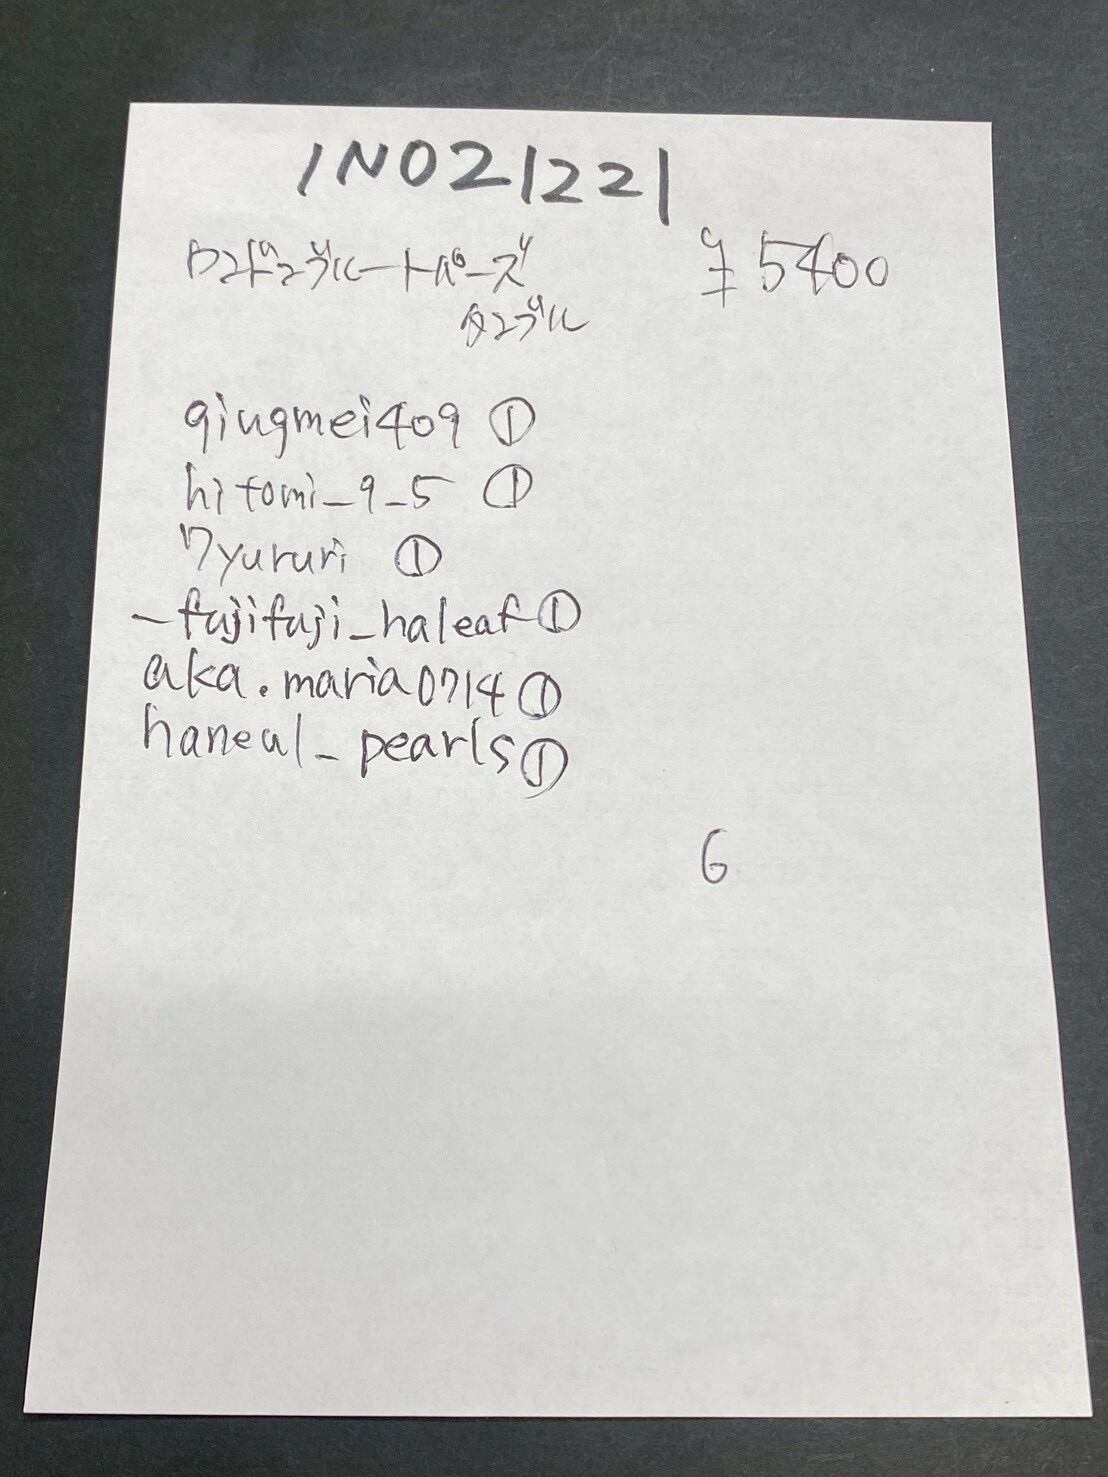 INO21221
ロンドンブルートパーズ ¥5400
タンブル
qiugmei409 ①
hitomi_9_5 ①
7yururi ①
_fujifuji_haleaf ①
aka.maria0714 ①
haneul_pearls ①
6